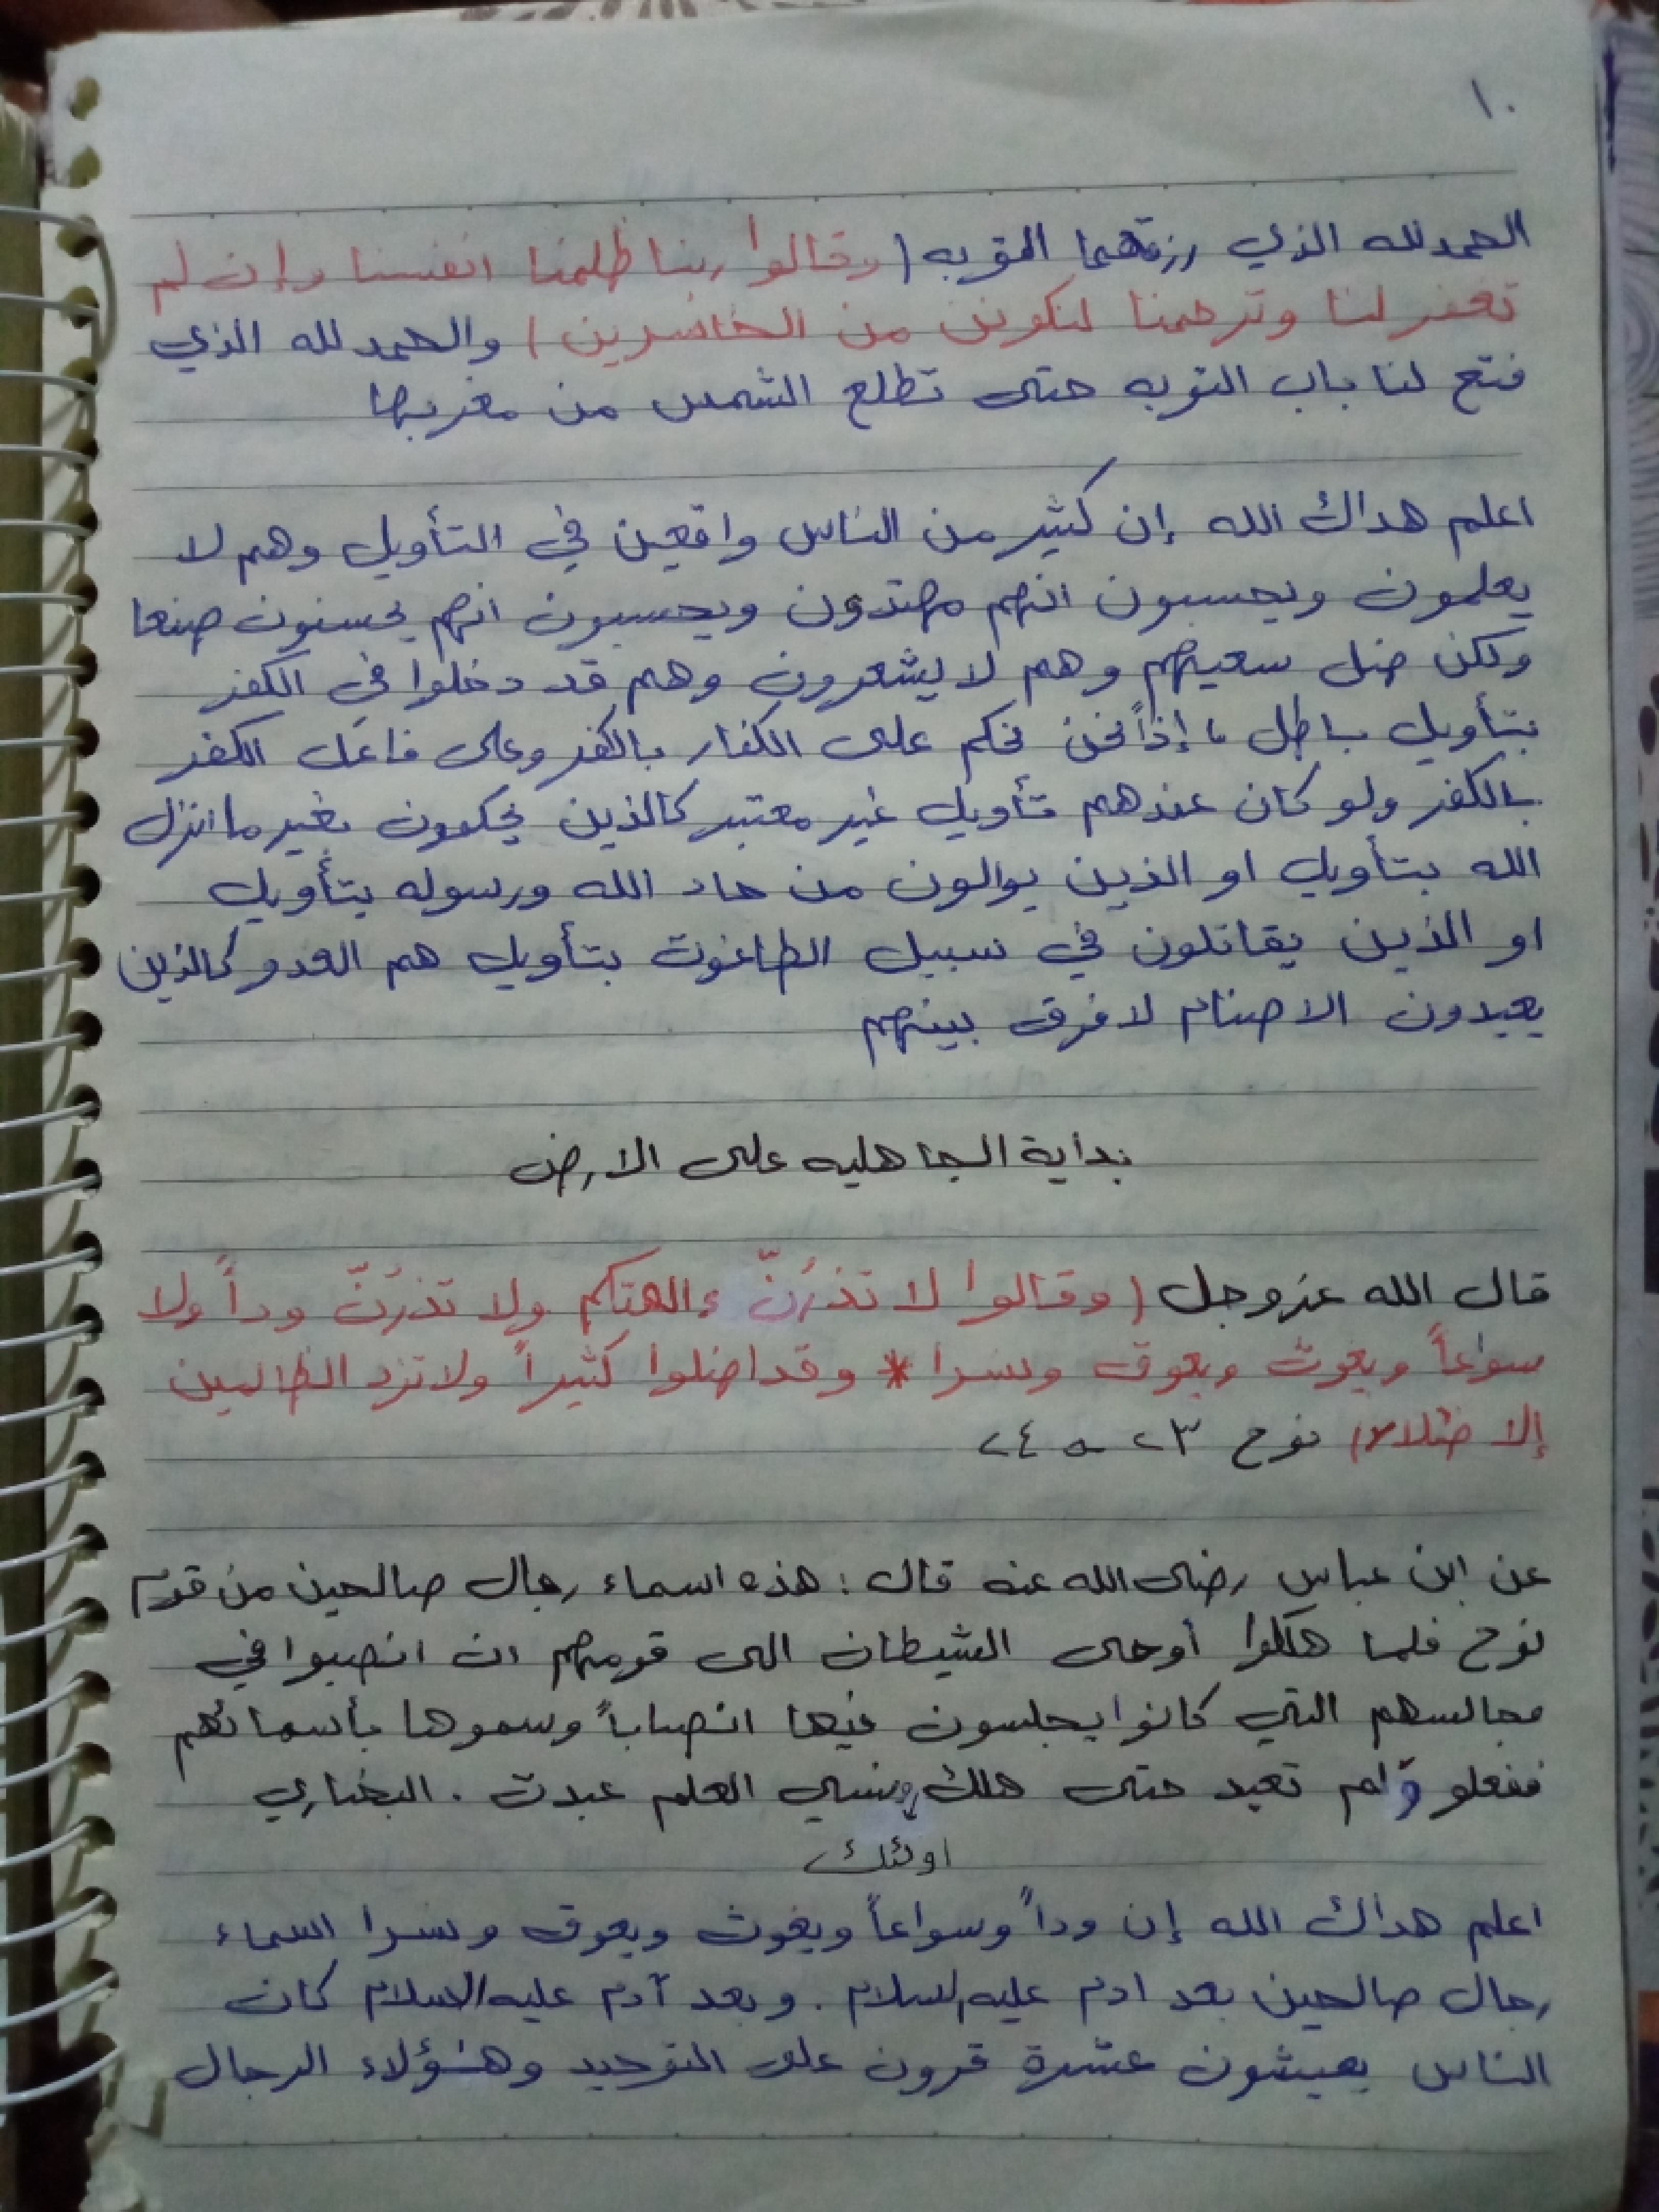 ١٠
الحمد لله الذي رزقهما التوبه (وقالوا ربنا ظلمنا انفسنا وإن لم
تغفر لنا وترحمنا لنكونن من الخاسرين) والحمد لله الذي
فتح لنا باب التوبه حتى تطلع الشمس من مغربها
اعلم هداك الله إن كثير من الناس واقعين في التأويل وهم لا
يعلمون ويحسبون انهم مهتدون ويحسبون انهم يحسنون صنعا
ولكن ضل سعيهم وهم لا يشعرون وهم قد دخلوا في الكفر
بتأويل باطل ، إذاً نحن نحكم على الكفار بالكفر وعلى فاعل الكفر
بالكفر ولو كان عندهم تأويل غير معتبر كالذين يحكمون بغير ما انزل
الله بتأويل او الذين يوالون من حاد الله ورسوله بتأويل
او الذين يقاتلون في سبيل الطاغوت بتأويل هم العدو كالذين
يعبدون الاصنام لا فرق بينهم
بداية الجاهليه على الارض
قال الله عز وجل (وقالوا لا تذرُنّ ءالهتكم ولا تذرُنّ وداً ولا
سواعاً ويغوث ويعوق ونسرا * وقد اضلوا كثيراً ولا تزد الظالمين
إلا ضللا) نوح ٢٣ - ٢٤
عن ابن عباس رضى الله عنه قال : هذه اسماء رجال صالحين من قوم
نوح فلما هلكوا أوحى الشيطان الى قومهم ان انصبوا في
مجالسهم التي كانوا يجلسون فيها انصاباً وسموها بأسمائهم
ففعلو ولم تعبد حتى هلك ونسي العلم عبدت . البخاري
اولئك
اعلم هداك الله إن وداً وسواعاً ويغوث ويعوق ونسرا اسماء
رجال صالحين بعد ادم عليه السلام . وبعد آدم عليه السلام كان
الناس يعيشون عشرة قرون على التوحيد وهؤلاء الرجال